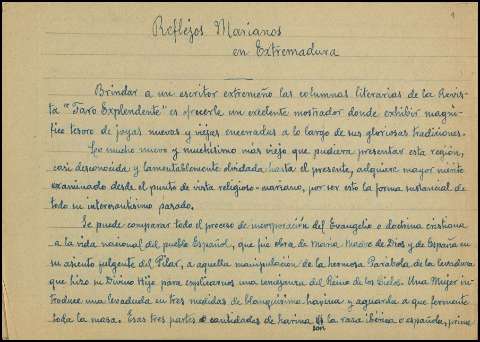 1
Reflejos Marianos
en Extremadura
Brindar a un escritor extremeño las columnas literarias de la Revis-
ta "Faro Explendente" es ofrecerle un excelente mostrador donde exhibir magní-
fico tesoro de joyas nuevas y viejas encerradas a lo largo de sus gloriosas tradiciones.
Lo mucho nuevo y muchísimo más viejo que pudiera presentar esta región,
casi desconocida y lamentablemente olvidada hasta el presente, adquiere mayor
examinado desde el punto de vista religioso-mariano, por ser esto la forma sustancial de
todo su interesantísimo pasado.
Se puede comparar todo el proceso de incorporación del Evangelio o doctrina cristiana
a la vida nacional del pueblo Español, que fué obra de María, Madre de Dios y de España en
su asiento fulgente del Pilar, a aquella manipulación de la hermosa Parábola de la levadura
que hizo su Divino Hijo para explicarnos una semejanza del Reino de los Cielos. Una Mujer in-
troduce una levadura en tres medidas de blanquísima harina y aguarda a que fermente
toda la masa. Esas tres partes o cantidades de harina son la raza ibérica o española, prime